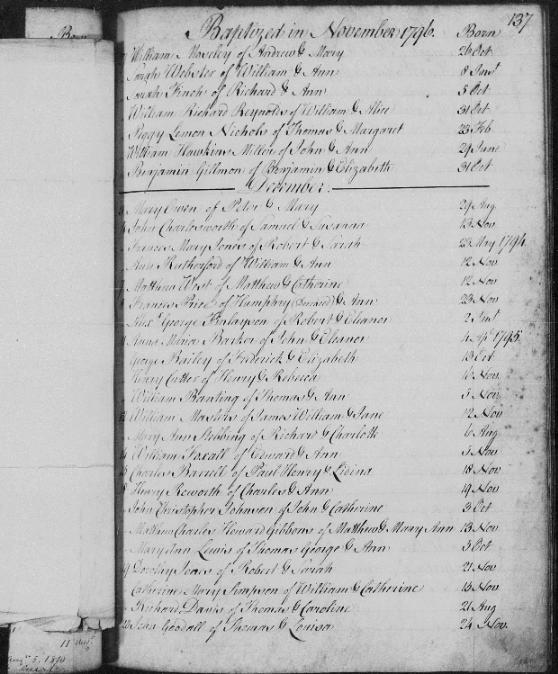 137
Baptized in November 1796. Born
William Moseley of Andrew & Mary 26 Oct
Webster of William & Ann 8
Finch of Richard & Ann 5 Oct
William Richard Reynolds of William & Alice 31 Oct
Peggy Lemon Nichols of Thomas & Margaret 23 Feb
William Hawkins Miller of John & Ann 29 June
Benjamin Gillmon of Benjamin & Elizabeth 31 Oct
December.
Mary Owen of Peter & Mary 29 Aug
John Charlesworth of Samuel & Susanna 13 Nov
Frances Mary Jones of Robert & Sarah 28 May 1794
Ann Rutherford of William & Ann 12 Nov
West of Matthew & Catherine 12 Nov
Frances Price of Humphry & Ann 23 Nov
Alexr. George Finlayson of Robert & Eleanor 2
Anna Maria Barker of John & Eleanor 4 1795
George Bailey of Frederick & Elizabeth 13 Oct
Henry Cutler of Henry & Rebecca Nov
William Banting of Thomas & Ann 5 Nov
William Masters of James William & Jane 12 Nov
Mary Ann Stebbing of Richard & Charlotte 6 Aug
William Foxall of Edward & Ann 5 Nov
Charles Barrell of Paul Henry & 18 Nov
Henry Reworth of Charles & Ann 19 Nov
John Christopher Johnson of John & Catherine 3 Oct
Charles Howard Gibbons of Matthew & Mary Ann 13 Nov
Mary Ann Lewis of Thomas George & Ann 3 Oct
Dorothy of Robert & Sarah 21 Nov
Catherine Mary Simpson of William & Catherine 15 Nov
Richard Davis of Thomas & Caroline 21 Aug
Goodall of Thomas & Louisa 24 Nov.